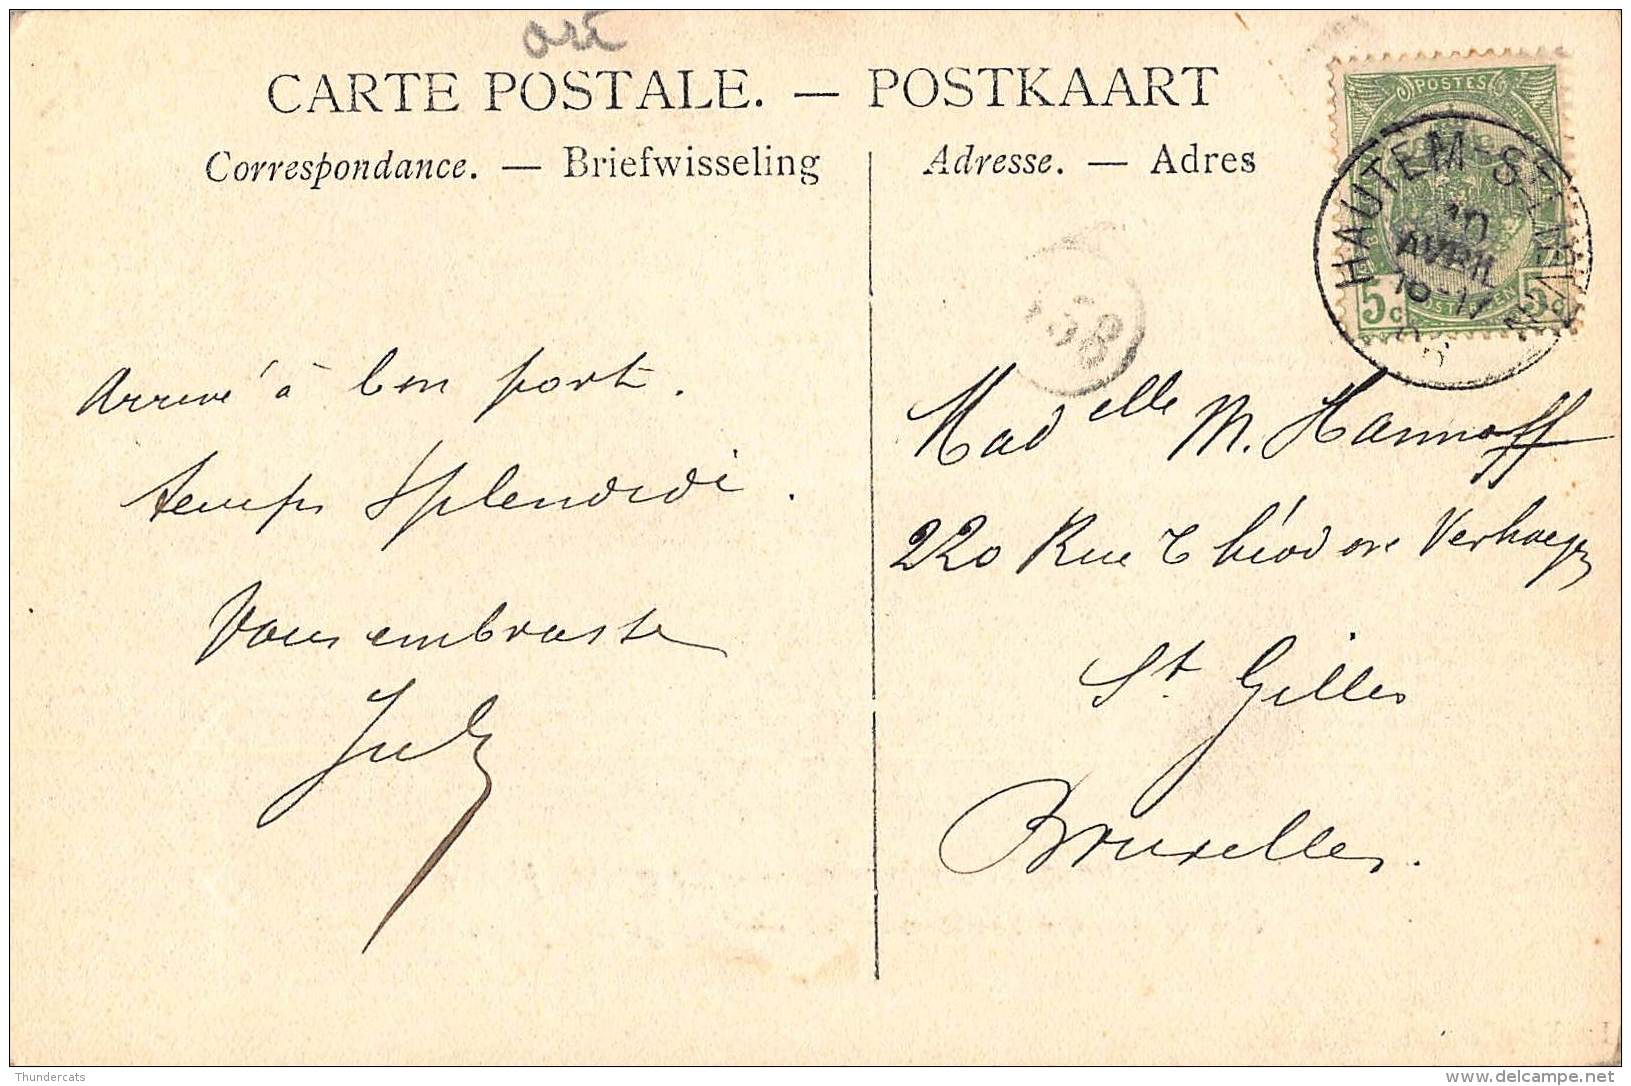 CARTE POSTALE. — POSTKAART
Correspondance. — Briefwisseling
Adresse. — Adres
POSTES
5c 5c
HAUTEM-ST
AVRIL
Arrivé à bon port.
temps splendide.
Vous embrasse
Madelle M. Hannoff
220 Rue Théodore Verhaegen
St. Gilles
Bruxelles.
Thundercats
delcampe.net